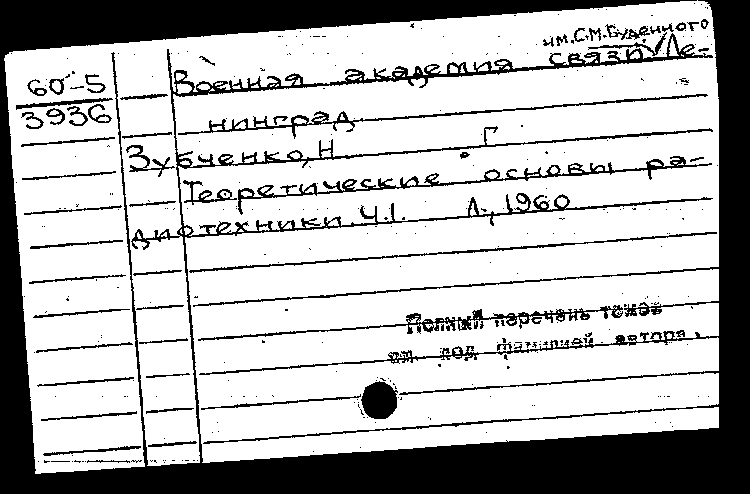 им. С.М. Буденного
60-5 Военная академия связи Ле-
3936 нинград
Зубченко, Н. Г.
Теоретические основы ра-
диотехники. Ч.1. Л., 1960
Полный перечень томов
см. под фамилией автора.